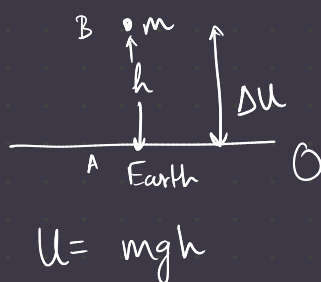 B m
h
ΔU
A
Earth
O
U= mgh